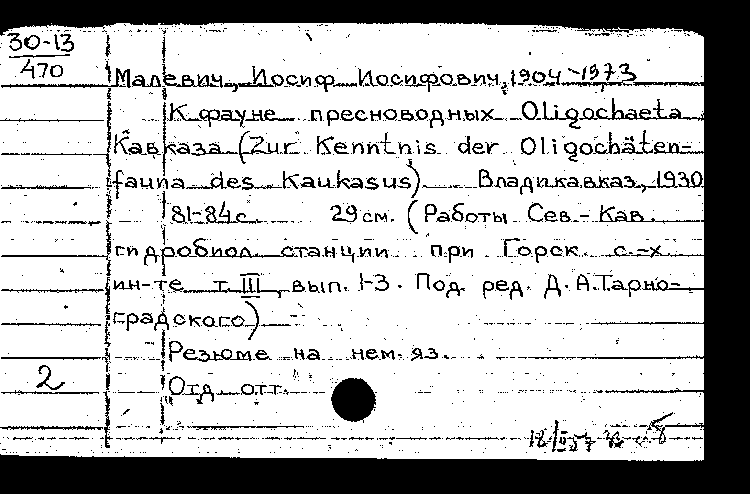 30-13
470
Малевич, Иосиф Иосифович, 1904-1973
К фауне пресноводных Oligochaeta
Кавказа (Zur Kenntnis der Oligochäten-
fauna des Kaukasus). Владикавказ, 1930
81-84 с. 29 см. (Работы Сев.-Кав.
гидробиол. станции при Горск. с.-х.
ин-те т. III, вып. 1-3. Под. ред. Д.А.Тарно-
градского)
Резюме на нем. яз.
2
Отд. отт.